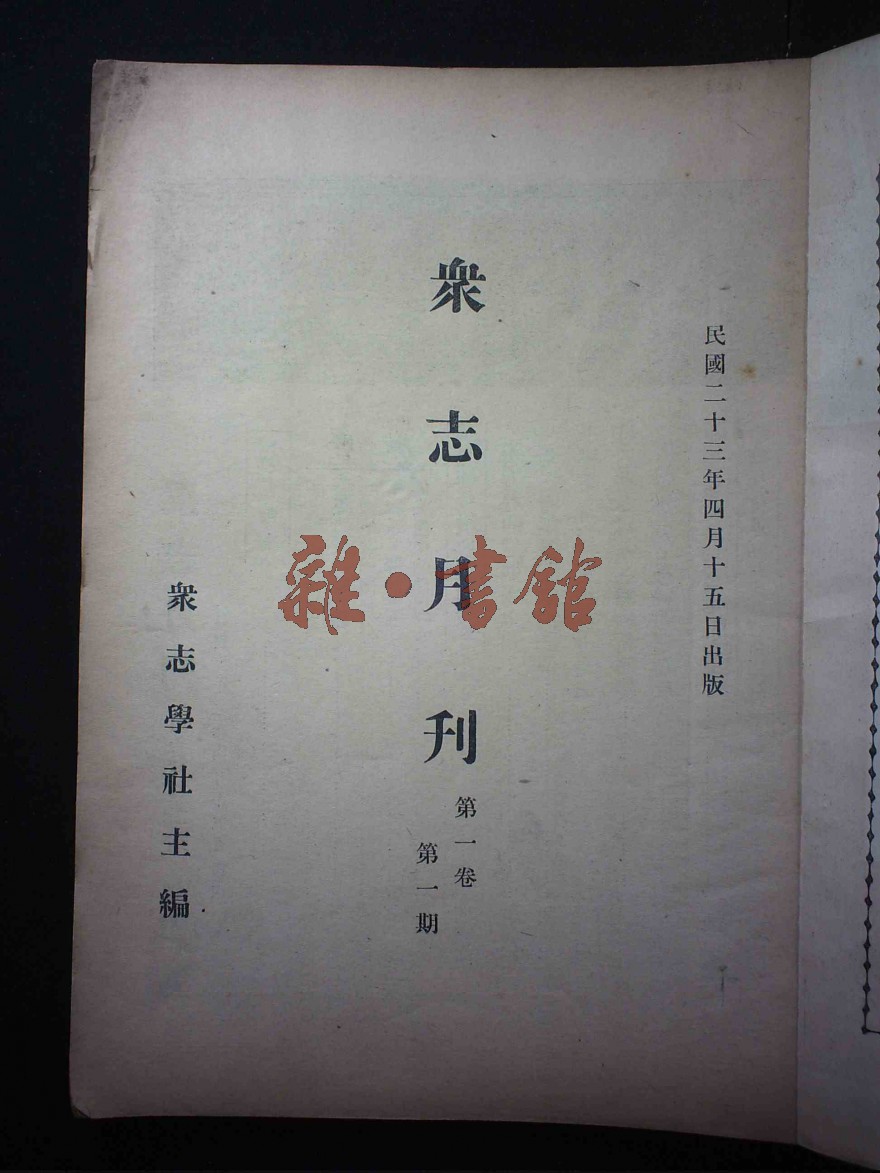 民國二十三年四月十五日出版
衆志月刊
第一卷
第一期
衆志學社主編
雜·書館